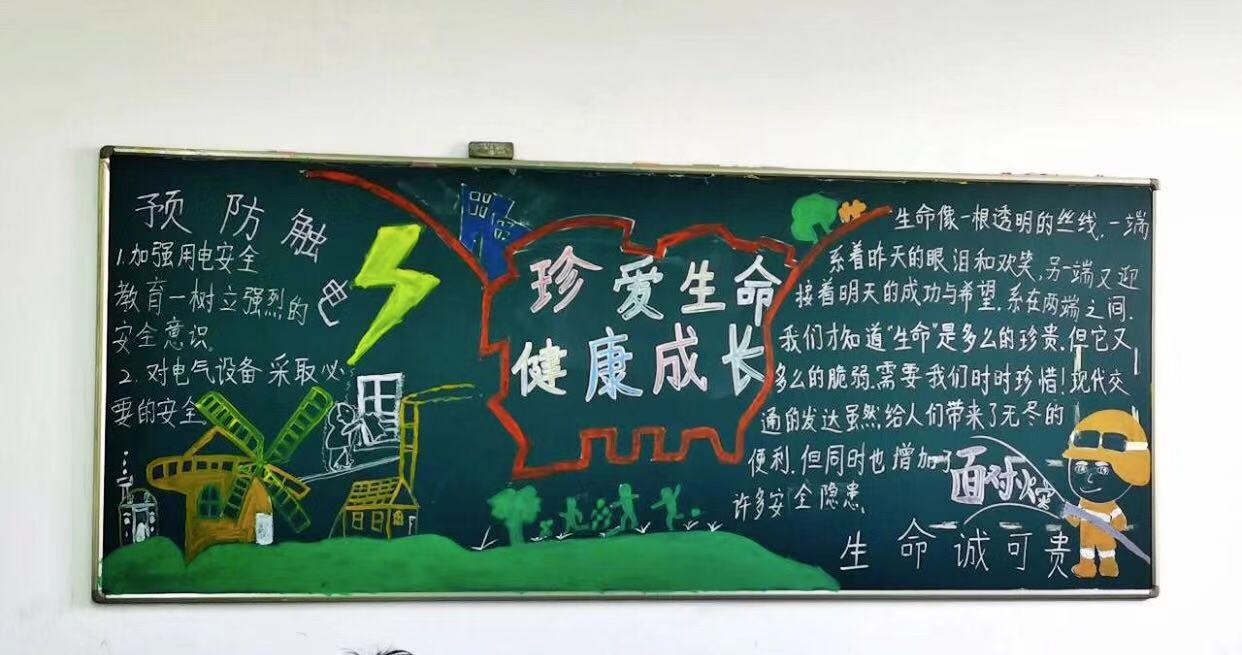 预防触电
1.加强用电安全
教育一树立强烈的
安全意识。
2.对电气设备采取必
要的安全
珍爱生命
健康成长
生命像一根透明的丝线.一端
系着昨天的眼泪和欢笑,另一端又迎
接着明天的成功与希望.系在两端之间.
我们才知道"生命"是多么的珍贵.但它又
多么的脆弱.需要我们时时珍惜!现代交
通的发达虽然给人们带来了无尽的
便利.但同时也增加了
许多安全隐患.
面对火灾
生命诚可贵